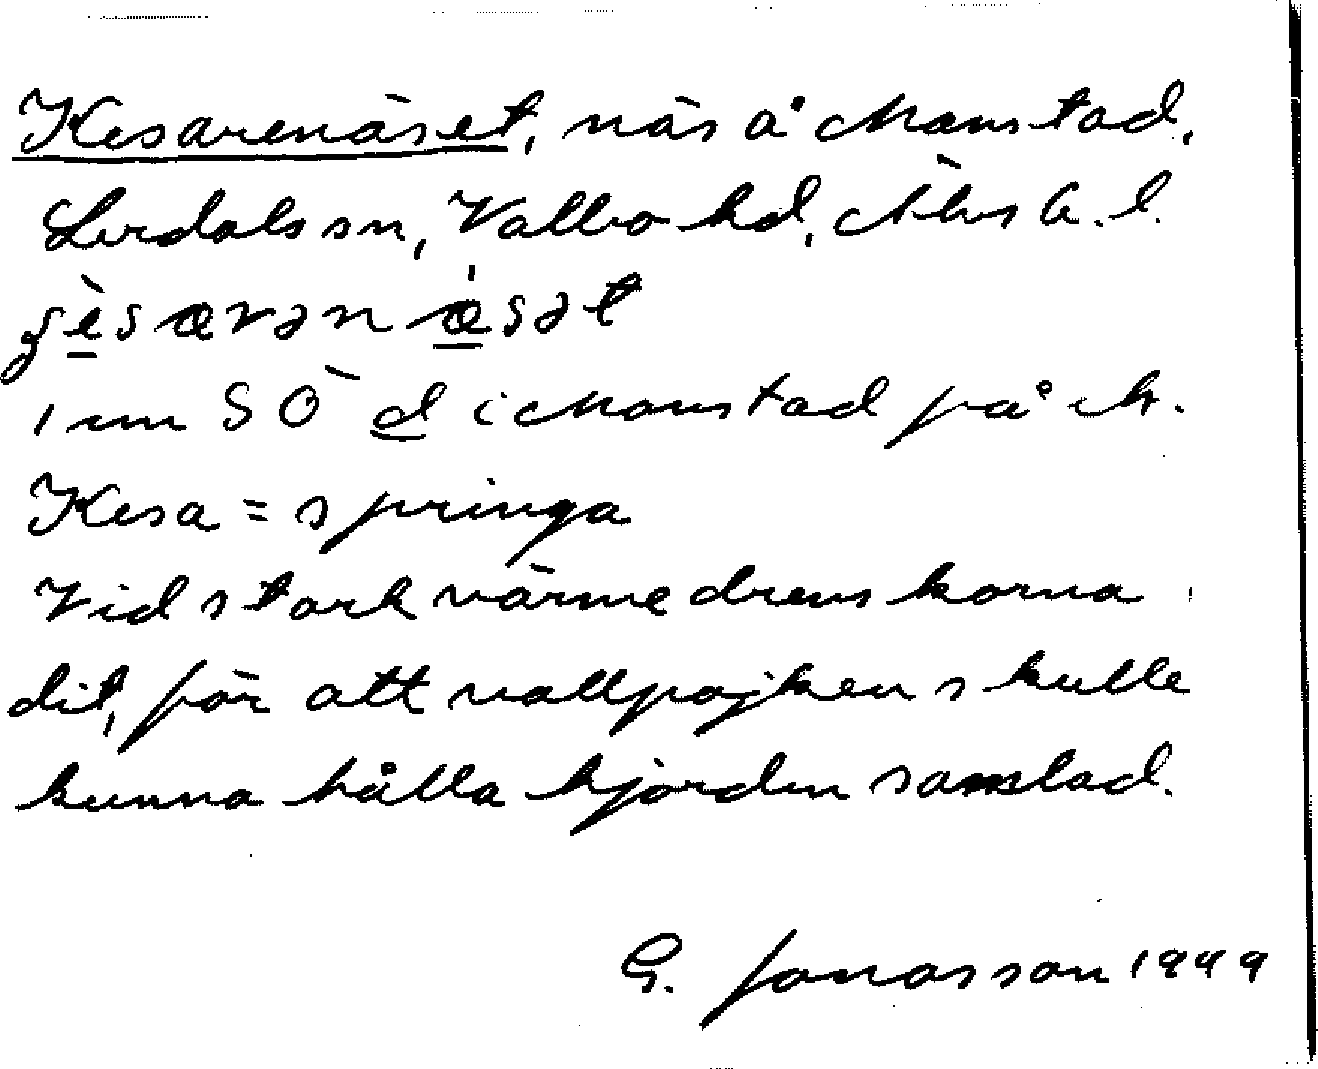 Kesarenäset, näs å Manstad,
Lerdals sn, Valbo hd, Älvsb. l.
ʒèsarənǽsət
1 km SÖ d i Manstad på ek.
Kesa = springa
Vid stark värme drevs korna
dit, för att vallpojken skulle
kunna hålla hjorden samlad.
G. Jonasson 1949